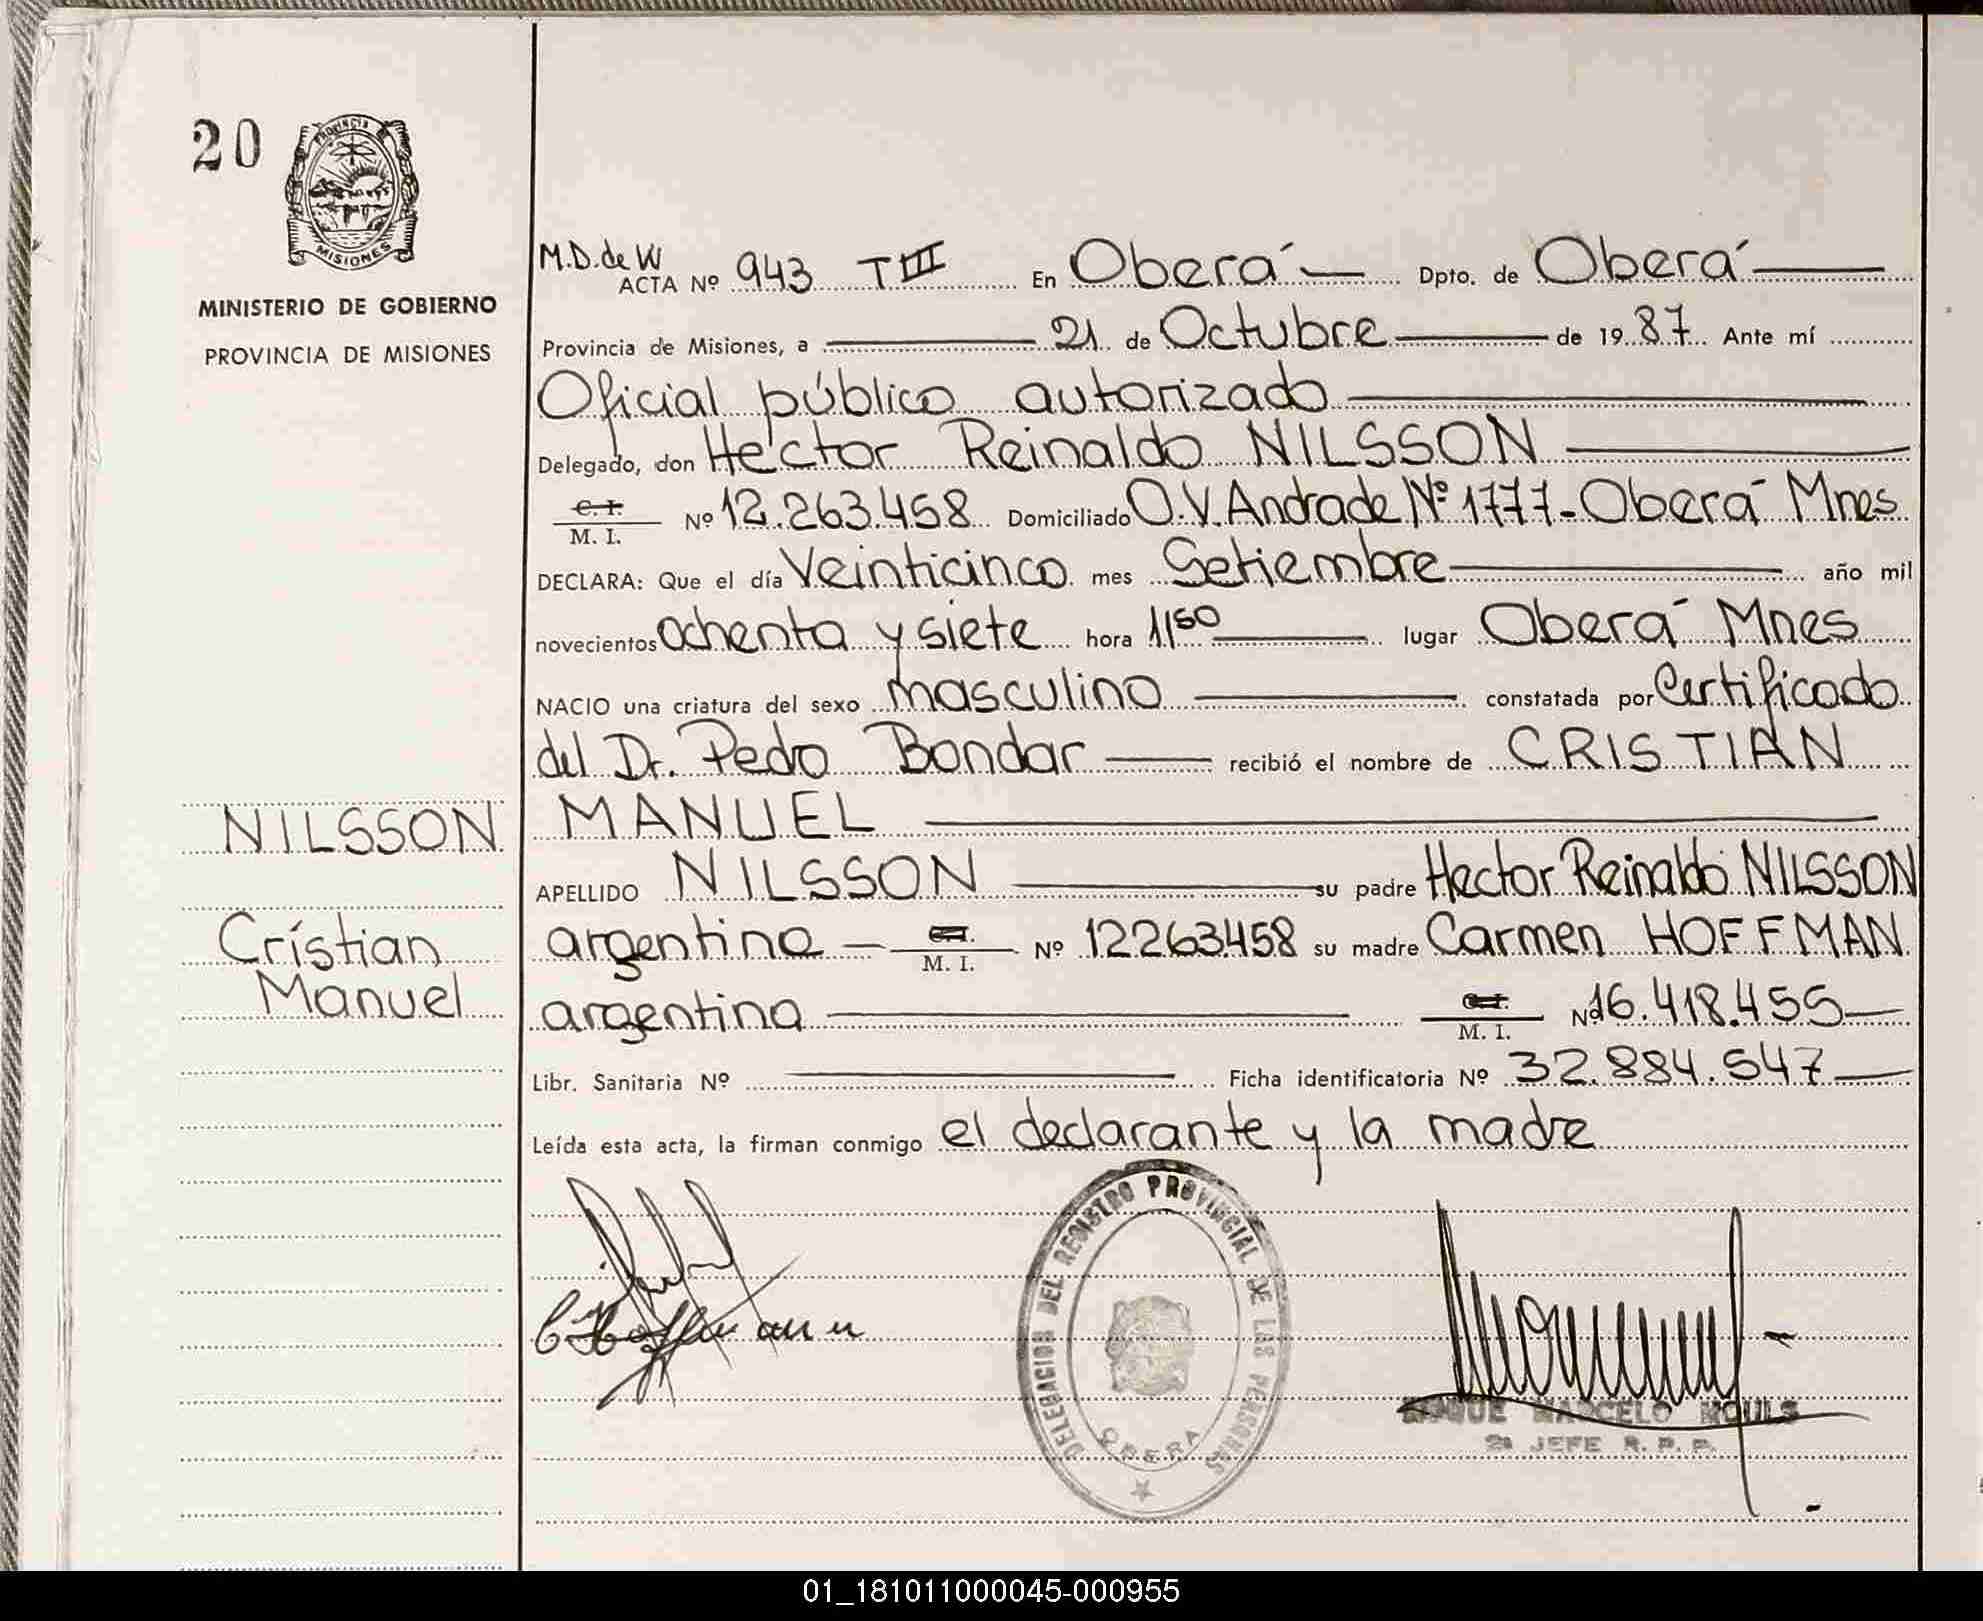 20
PROVINCIA DE
MISIONES
MINISTERIO DE GOBIERNO
PROVINCIA DE MISIONES
NILSSON
Cristian
Manuel
M.D.de W
ACTA Nº 943 T III En Oberá Dpto. de Oberá
Provincia de Misiones, a 21 de Octubre de 1987 Ante mí
Oficial público autorizado
Delegado, don Hector Reinaldo NILSSON
C.I. M. I. Nº 12.263.458 Domiciliado O.V. Andrade Nº 1777-Oberá Mnes
DECLARA: Que el día Veinticinco mes Setiembre año mil
novecientos ochenta y siete hora 11⁵⁰ lugar Oberá Mnes
NACIO una criatura del sexo masculino constatada por Certificado
del Dr. Pedro Bondar recibió el nombre de CRISTIAN
MANUEL
APELLIDO NILSSON su padre Hector Reinaldo NILSSON
argentino M. I. Nº 12263458 su madre Carmen HOFFMAN
argentina M. I. Nº 16.418.455
Libr. Sanitaria Nº Ficha identificatoria Nº 32.884.547
Leída esta acta, la firman conmigo el declarante y la madre
C Hoffmann
DELEGACION DEL REGISTRO PROVINCIAL DE LAS PERSONAS
OBERA
ROQUE MARCELO MOULS
2º JEFE R. P. P.
01_181011000045-000955